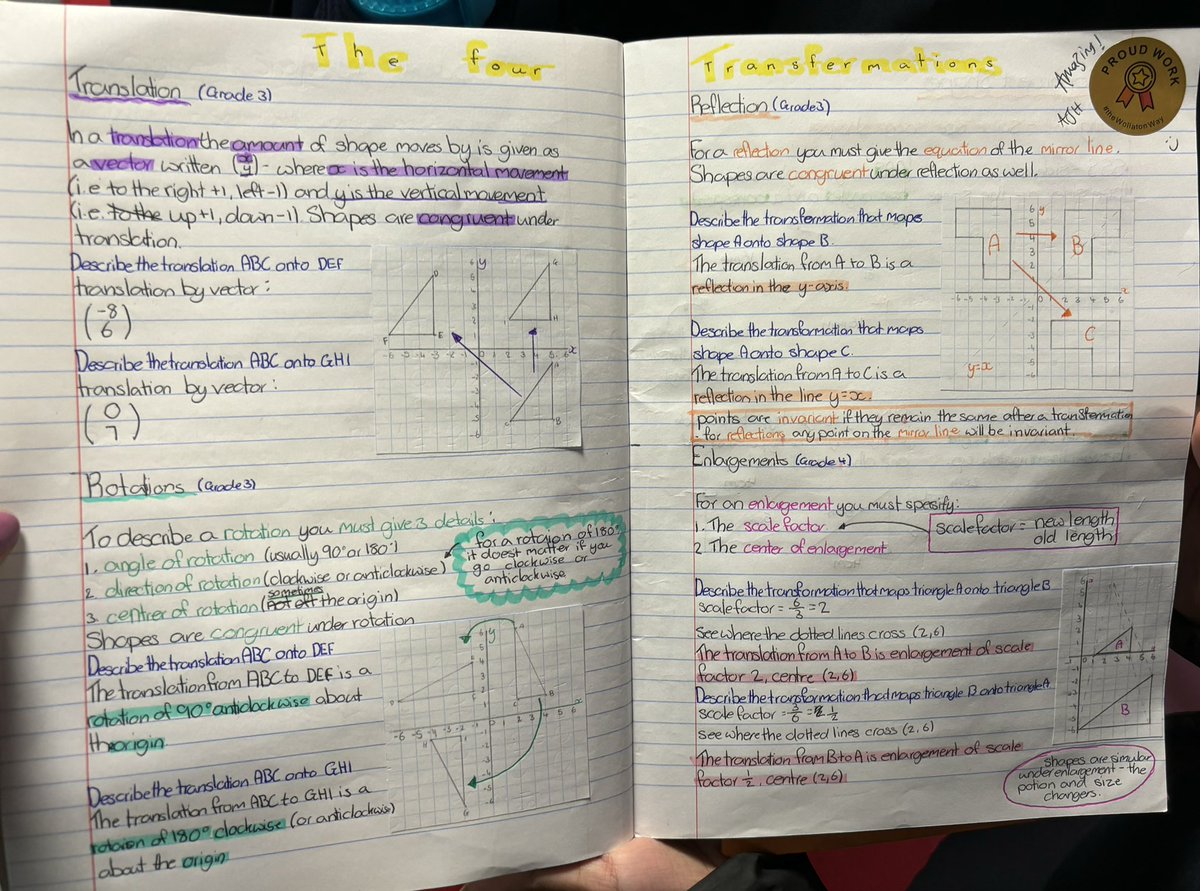 The four
Translation (Grade 3)
In a translation the amount of shape moves by is given as
a vector written (x y) - where x is the horizontal movement
(i.e to the right +1, left -1) and y is the vertical movement
(i.e. to the up +1, down -1). Shapes are congruent under
translation.
Describe the translation ABC onto DEF
translation by vector:
(-8
6)
Describe the translation ABC onto GHI
translation by vector:
(0
7)
Rotations (Grade 3)
To describe a rotation you must give 3 details:
1. angle of rotation (usually 90° or 180°)
2. direction of rotation (clockwise or anticlockwise)
sometimes
3. centrer of rotation (the origin)
for a rotation of 180°
it doest matter if you
go clockwise or
anticlockwise
Shapes are congruent under rotation
Describe the translation ABC onto DEF
The translation from ABC to DEF is a
rotation of 90° anticlockwise about
the origin.
Describe the translation ABC onto GHI
The translation from ABC to GHI is a
rotation of 180° clockwise (or anticlockwise)
about the origin
Transformations
Amazing!
AJH
PROUD WORK
#theWollatonWay
Reflection (Grade 3)
For a reflection you must give the equation of the mirror line.
Shapes are congruent under reflection as well.
Describe the transformation that maps
shape A onto shape B.
The translation from A to B is a
reflection in the y-axis.
Describe the transformation that maps
shape A onto shape C.
The translation from A to C is a
reflection in the line y=x.
A
B
C
y=x
points are invariant if they remain the same after a transformation
. for reflections any point on the mirror line will be invariant.
Enlargements (Grade 4)
For an enlargement you must spesify:
1. The scale factor
2. The center of enlargement
scale factor = new length
old length
Describe the transformation that maps triangle A onto triangle B
scale factor = 6/3 = 2
see where the dotted lines cross (2,6)
The translation from A to B is enlargement of scale
factor 2, centre (2,6)
Describe the transformation that maps triangle B onto triangle A
scale factor = 3/6 = 1/2
see where the dotted lines cross (2,6)
The translation from B to A is enlargement of scale
factor 1/2, centre (2,6)
A
B
shapes are simular
under enlargement - the
potion and size
changers.